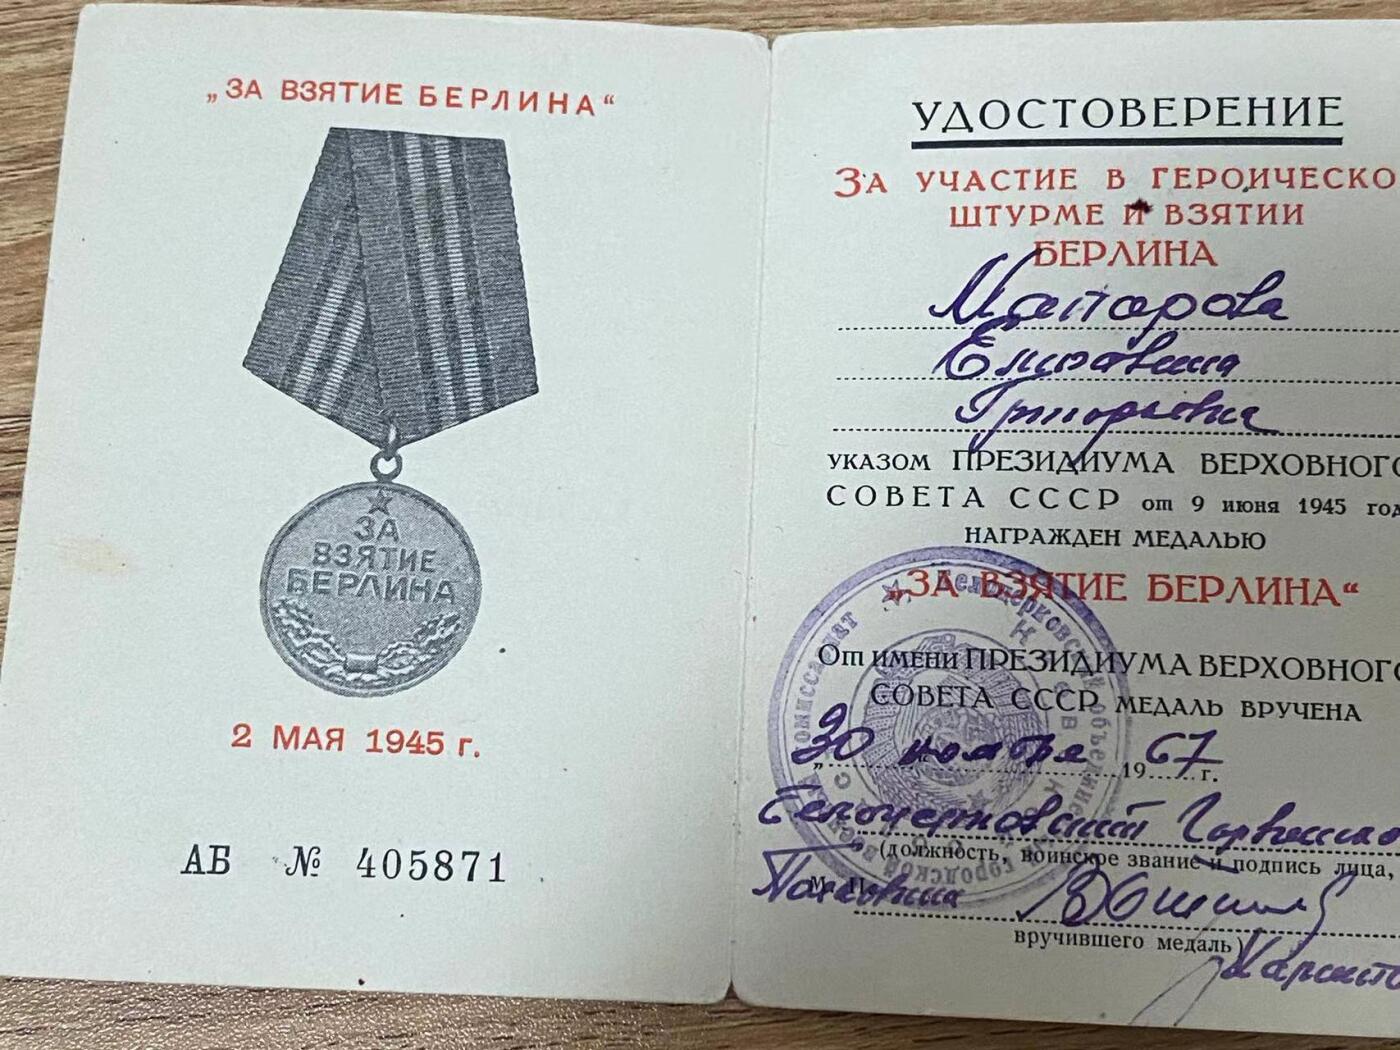 „ЗА ВЗЯТИЕ БЕРЛИНА“
ЗА
ВЗЯТИЕ
БЕРЛИНА
2 МАЯ 1945 г.
АБ № 405871
УДОСТОВЕРЕНИЕ
ЗА УЧАСТИЕ В ГЕРОИЧЕСКО
ШТУРМЕ И ВЗЯТИИ
БЕРЛИНА
Григорьевна
УКАЗОМ ПРЕЗИДИУМА ВЕРХОВНОГО
СОВЕТА СССР от 9 июня 1945 год
НАГРАЖДЕН МЕДАЛЬЮ
„ЗА ВЗЯТИЕ БЕРЛИНА“
От имени ПРЕЗИДИУМА ВЕРХОВНОГО
СОВЕТА СССР МЕДАЛЬ ВРУЧЕНА
„30 ноября 1967 г.
Белоцерковский
(должность, воинское звание и подпись лица,
М. П.
вручившего медаль)